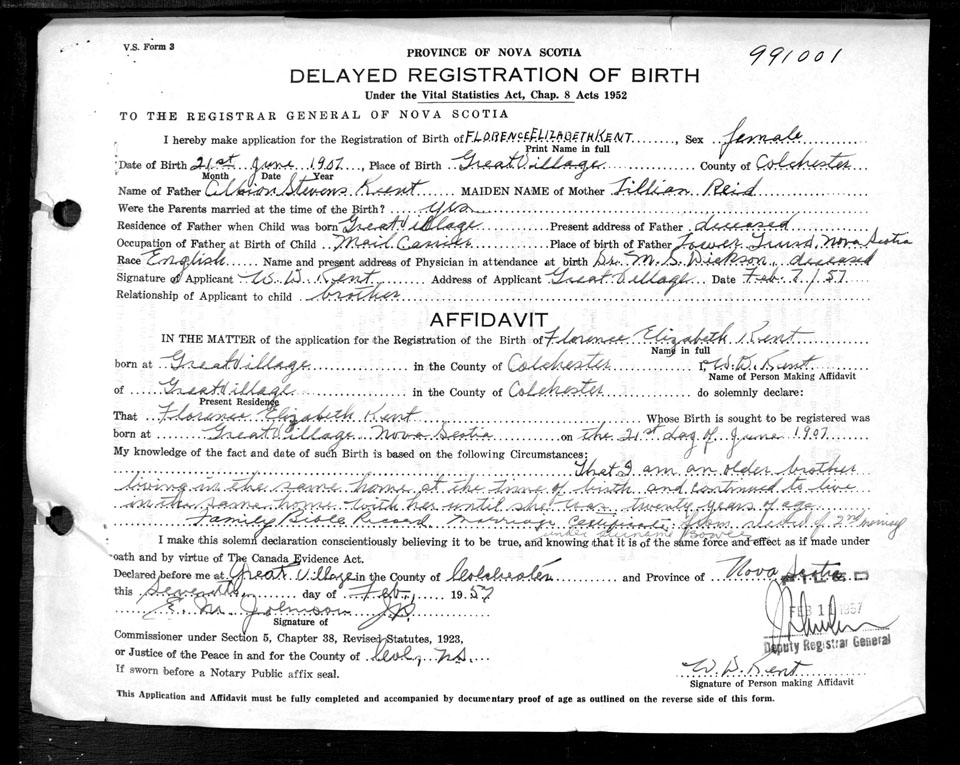 V.S. Form 3
991001
PROVINCE OF NOVA SCOTIA
DELAYED REGISTRATION OF BIRTH
Under the Vital Statistics Act, Chap. 8 Acts 1952
TO THE REGISTRAR GENERAL OF NOVA SCOTIA
I hereby make application for the Registration of Birth of FLORENCE ELIZABETH KENT, Sex female
Print Name in full
Date of Birth 21st June 1907, Place of Birth Great Village County of Colchester
Month Date Year
Name of Father Albion Stevens Kent MAIDEN NAME of Mother Lillian Reid
Were the Parents married at the time of the Birth? yes
Residence of Father when Child was born Great Village Present address of Father deceased
Occupation of Father at Birth of Child Mail Carrier Place of birth of Father Lower Truro, Nova Scotia
Race English Name and present address of Physician in attendance at birth Dr. M. S. Dickson, deceased
Signature of Applicant W. D. Kent Address of Applicant Great Village Date Feb. 7/57
Relationship of Applicant to child brother
AFFIDAVIT
IN THE MATTER of the application for the Registration of the Birth of Florence Elizabeth Kent
Name in full
born at Great Village in the County of Colchester I, W. D. Kent
Name of Person Making Affidavit
of Great Village in the County of Colchester do solemnly declare:
Present Residence
That Florence Elizabeth Kent Whose Birth is sought to be registered was
born at Great Village Nova Scotia on the 21st day of June 1907
My knowledge of the fact and date of such Birth is based on the following Circumstances:
That I am an older brother
living in the same home at the time of birth and continued to live
in the same home with her until she was twenty years of age
Family Bible Record Marriage Certificate of 2nd
under surname Bower
I make this solemn declaration conscientiously believing it to be true, and knowing that it is of the same force and effect as if made under
oath and by virtue of The Canada Evidence Act.
Declared before me at Great Village in the County of Colchester and Province of Nova Scotia
this Seventh day of Feb. 1957
FILED
FEB 1 1957
E. M. Johnson J.P.
Signature of
Deputy Registrar General
Commissioner under Section 5, Chapter 38, Revised Statutes, 1923,
or Justice of the Peace in and for the County of Col. N.S.
W. D. Kent
If sworn before a Notary Public affix seal.
Signature of Person making Affidavit
This Application and Affidavit must be fully completed and accompanied by documentary proof of age as outlined on the reverse side of this form.